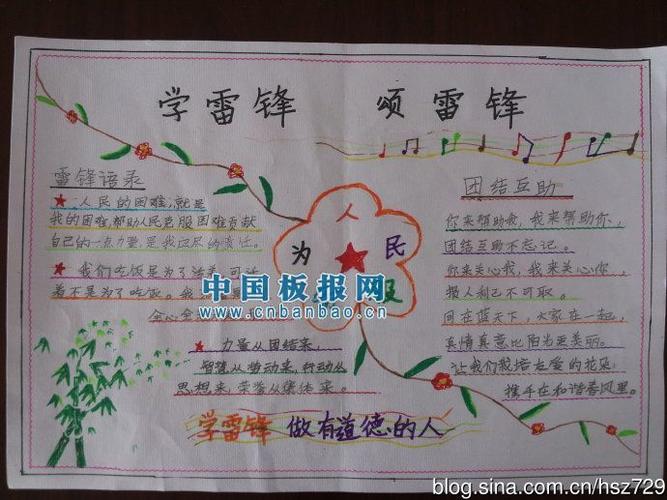 学雷锋 颂雷锋
雷锋语录
★人民的困难,就是
我的困难,帮助人民克服困难贡献
自己的一点力量,是我应尽的责任。
★我们吃饭是为了活着,可活
着不是为了吃饭。我
全心全
★力量从团结来,
智慧从劳动来,行动从
思想来,荣誉从集体来。
人
为 民
服
团结互助
你来帮助我,我来帮助你,
团结互助不忘记。
你来关心我,我来关心你,
损人利己不可取。
同在蓝天下,大家在一起,
真情真意比阳光更美丽。
让我们栽培友爱的花朵
携手在和谐春风里。
学雷锋 做有道德的人
中国板报网
www.cnbanbao.cn
blog.sina.com.cn/hsz729